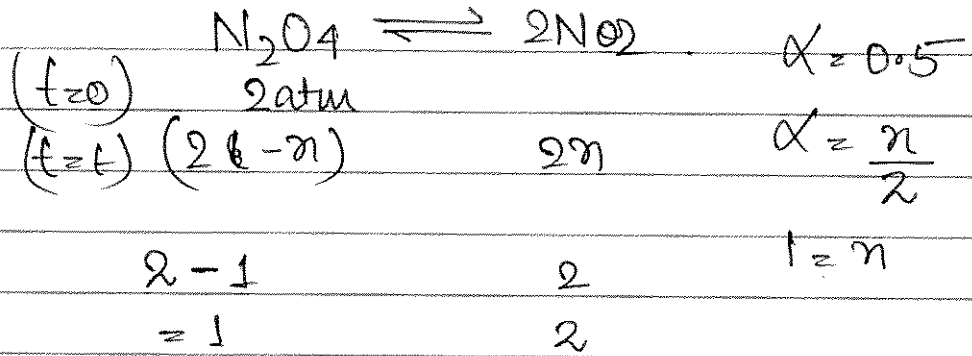 N₂O₄ ⇌ 2NO₂ . α = 0.5
(t=0) 2atm
(t=t) (2 - x) 2x α = x/2
1 = x
2 - 1 2
= 1 2